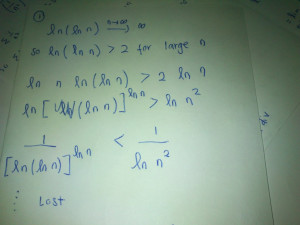 ①
ln(ln n) n→∞ → ∞
so ln(ln n) > 2 for large n
ln n ln(ln n) > 2 ln n
ln [ (ln n)]^{ln n} > ln n^2
1 / [ln(ln n)]^{ln n} < 1 / ln n^2
⋮ Lost